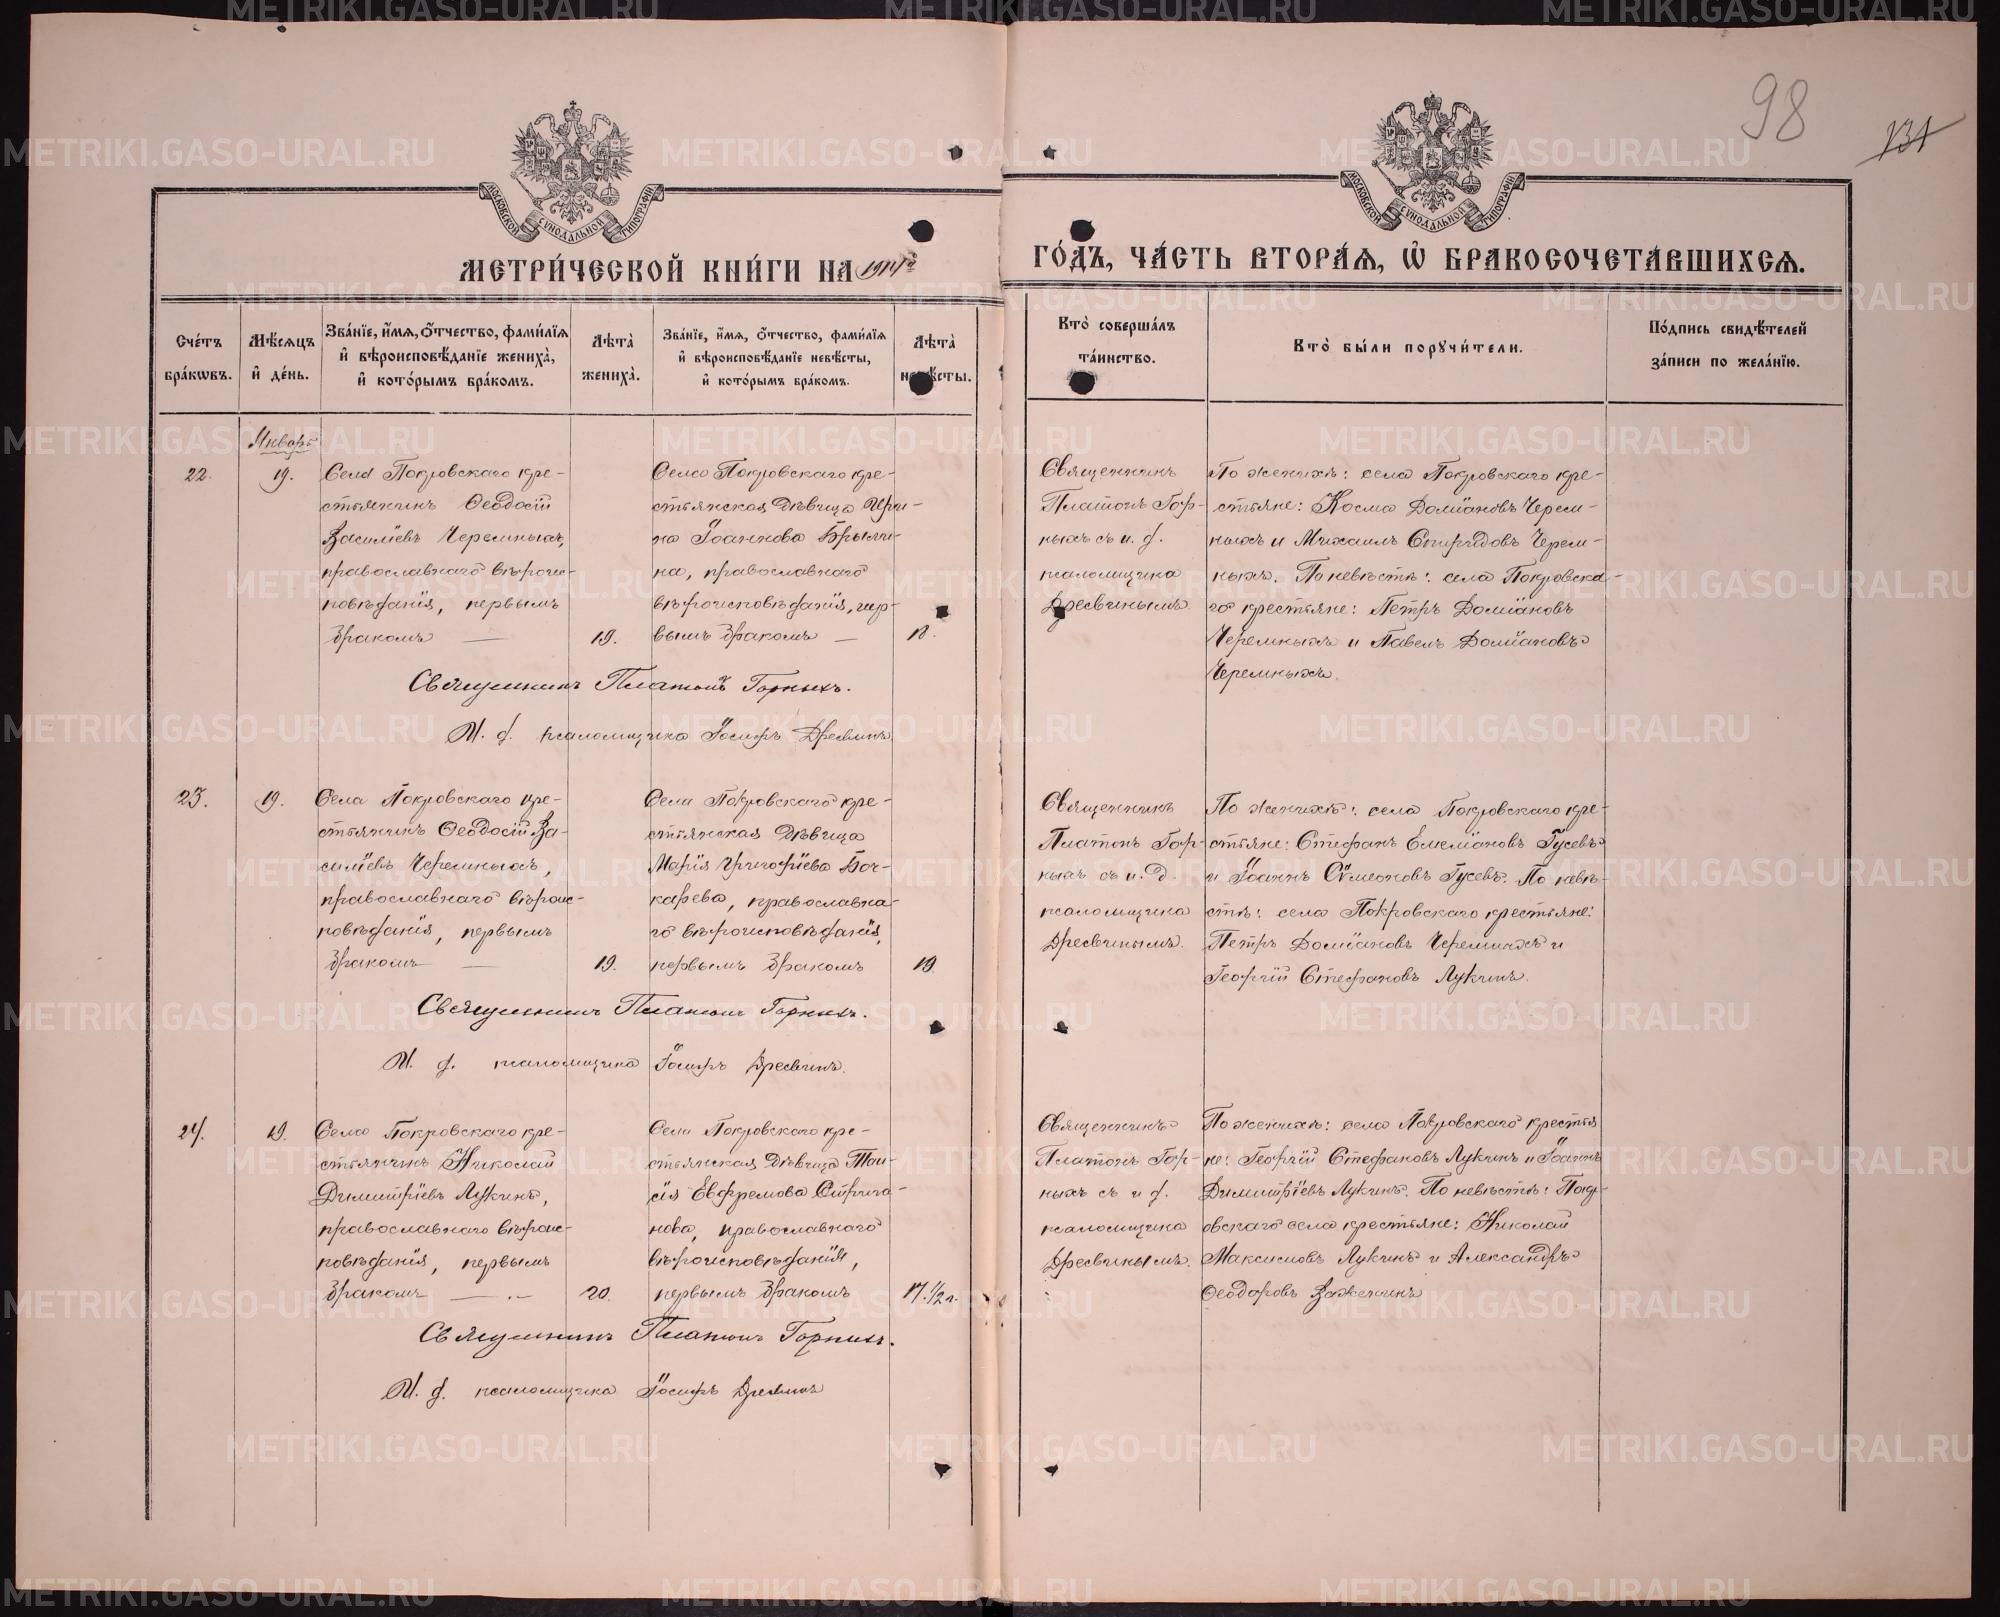 98
131
МОСКОВСКОЙ СѴНОДАЛЬНОЙ ТИПОГРАФІИ
МОСКОВСКОЙ СѴНОДАЛЬНОЙ ТИПОГРАФІИ
МЕТРИ́ЧЕСКОЙ КНИ́ГИ НА
ГО́ДЪ, ЧА́СТЬ ВТОРА́Я, Ѡ БРАКОСОЧЕТА́ВШИХСЯ.
Сче́тъ бра́кѡвъ.
Мѣ́сяцъ и҆ де́нь.
Зва́нїе, и҆́мя, о҆́тчество, фами́лїя
и҆ вѣроисповѣ́данїе жениха̀,
и҆ кото́рымъ бра́комъ.
Лѣта̀ жениха̀.
Зва́нїе, и҆́мя, о҆́тчество, фами́лїя
и҆ вѣроисповѣ́данїе невѣ́сты,
и҆ кото́рымъ бра́комъ.
Лѣта̀ невѣ́сты.
Кто̀ соверша́лъ
та́инство.
Кто̀ бы́ли порꙋчи́тели.
По́дпись свидѣ́телей
за́писи по жела́нїю.
Январь
22.
19.
Села Покровскаго кре-
стьянинъ Ѳеодосій
Василіевъ Черемныхъ,
православнаго вѣроис-
повѣданія, первымъ
бракомъ —
19.
Села Покровскаго кре-
стьянская дѣвица Ири-
на Іоаннова Брыли-
на, православнаго
вѣроисповѣданія, пер-
вымъ бракомъ —
18.
Священникъ
Платонъ Гор-
ныхъ съ и. д.
псаломщика
Дресвинымъ
По женихѣ: села Покровскаго кре-
стьяне: Косма Доміановъ Черем-
ныхъ и Михаилъ Спиридовъ Черем-
ныхъ. По невѣстѣ: села Покровска-
го крестьяне: Петръ Доміановъ
Черемныхъ и Павелъ Доміановъ
Черемныхъ.
Священникъ Платонъ Горныхъ.
И. д. псаломщика Іосифъ Дресвинъ
23.
19.
Села Покровскаго кре-
стьянинъ Ѳеодосій Ва-
силіевъ Черемныхъ,
православнаго вѣроис-
повѣданія, первымъ
бракомъ —
19.
Села Покровскаго кре-
стьянская дѣвица
Марія Григоріева Боч-
карева, православна-
го вѣроисповѣданія,
первымъ бракомъ
19
Священникъ
Платонъ Гор-
ныхъ съ и. д.
псаломщика
Дресвинымъ.
По женихѣ: села Покровскаго кре-
стьяне: Стефанъ Емеліановъ Гусевъ
и Іоаннъ Сѵмеоновъ Гусевъ. По невѣ-
стѣ: села Покровскаго крестьяне:
Петръ Доміановъ Черемныхъ и
Георгій Стефановъ Лукинъ.
Священникъ Платонъ Горныхъ.
И. д. псаломщика Іосифъ Дресвинъ.
24.
19.
Села Покровскаго кре-
стьянинъ Николай
Димитріевъ Лукинъ,
православнаго вѣроис-
повѣданія, первымъ
бракомъ —
20.
Села Покровскаго кре-
стьянская дѣвица Таи-
сія Евфремова Стрига-
нова, православнаго
вѣроисповѣданія,
первымъ бракомъ
17.1/2 л.
Священникъ
Платонъ Гор-
ныхъ съ и д.
псаломщика
Дресвинымъ.
По женихѣ: села Покровскаго крестья
не: Георгій Стефановъ Лукинъ и Іоаннъ
Димитріевъ Лукинъ. По невѣстѣ: Покр-
овскаго села крестьяне: Николай
Максимовъ Лукинъ и Александръ
Ѳеодоровъ Заженинъ
Священникъ Платонъ Горныхъ.
И. д. псаломщика Іосифъ Дресвинъ
METRIKI.GASO-URAL.RU